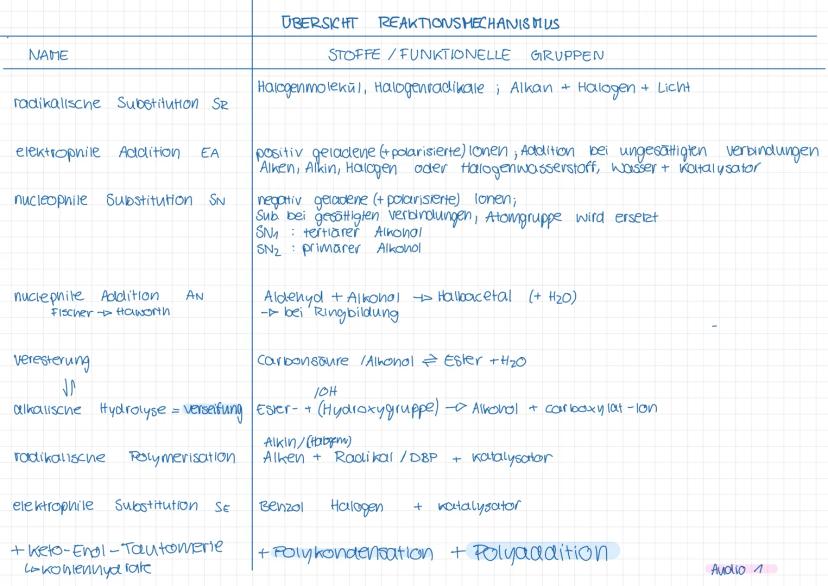 ÜBERSICHT REAKTIONSMECHANISMUS
NAME STOFFE / FUNKTIONELLE GRUPPEN
radikalische Substitution SR
Halogenmolekül, Halogenradikale ; Alkan + Halogen + Licht
elektrophile Addition EA
positiv geladene (+polarisierte) Ionen ; Addition bei ungesättigten Verbindungen
Alken, Alkin, Halogen oder Halogenwasserstoff, Wasser + Katalysator
nucleophile Substitution SN
negativ geladene (+ polarisierte) Ionen;
Sub. bei gesättigten Verbindungen, Atomgruppe wird ersetzt
SN1 : tertiärer Alkohol
SN2 : primärer Alkohol
nuclephile Addition AN
Fischer → Haworth
Aldehyd + Alkohol → Halbacetal (+ H2O)
→ bei Ringbildung
Veresterung
Carbonsäure / Alkohol ⇌ Ester + H2O
alkalische Hydrolyse = Verseifung
/OH
Ester- + (Hydroxygruppe) → Alkohol + Carboxylat-Ion
radikalische Polymerisation
Alkin/(Halogen)
Alken + Radikal / DBP + Katalysator
elektrophile Substitution SE
Benzol Halogen + Katalysator
+ Keto-Enol-Tautomerie
↳ Kohlenhydrate
+ Polykondensation + Polyaddition
Audio 1